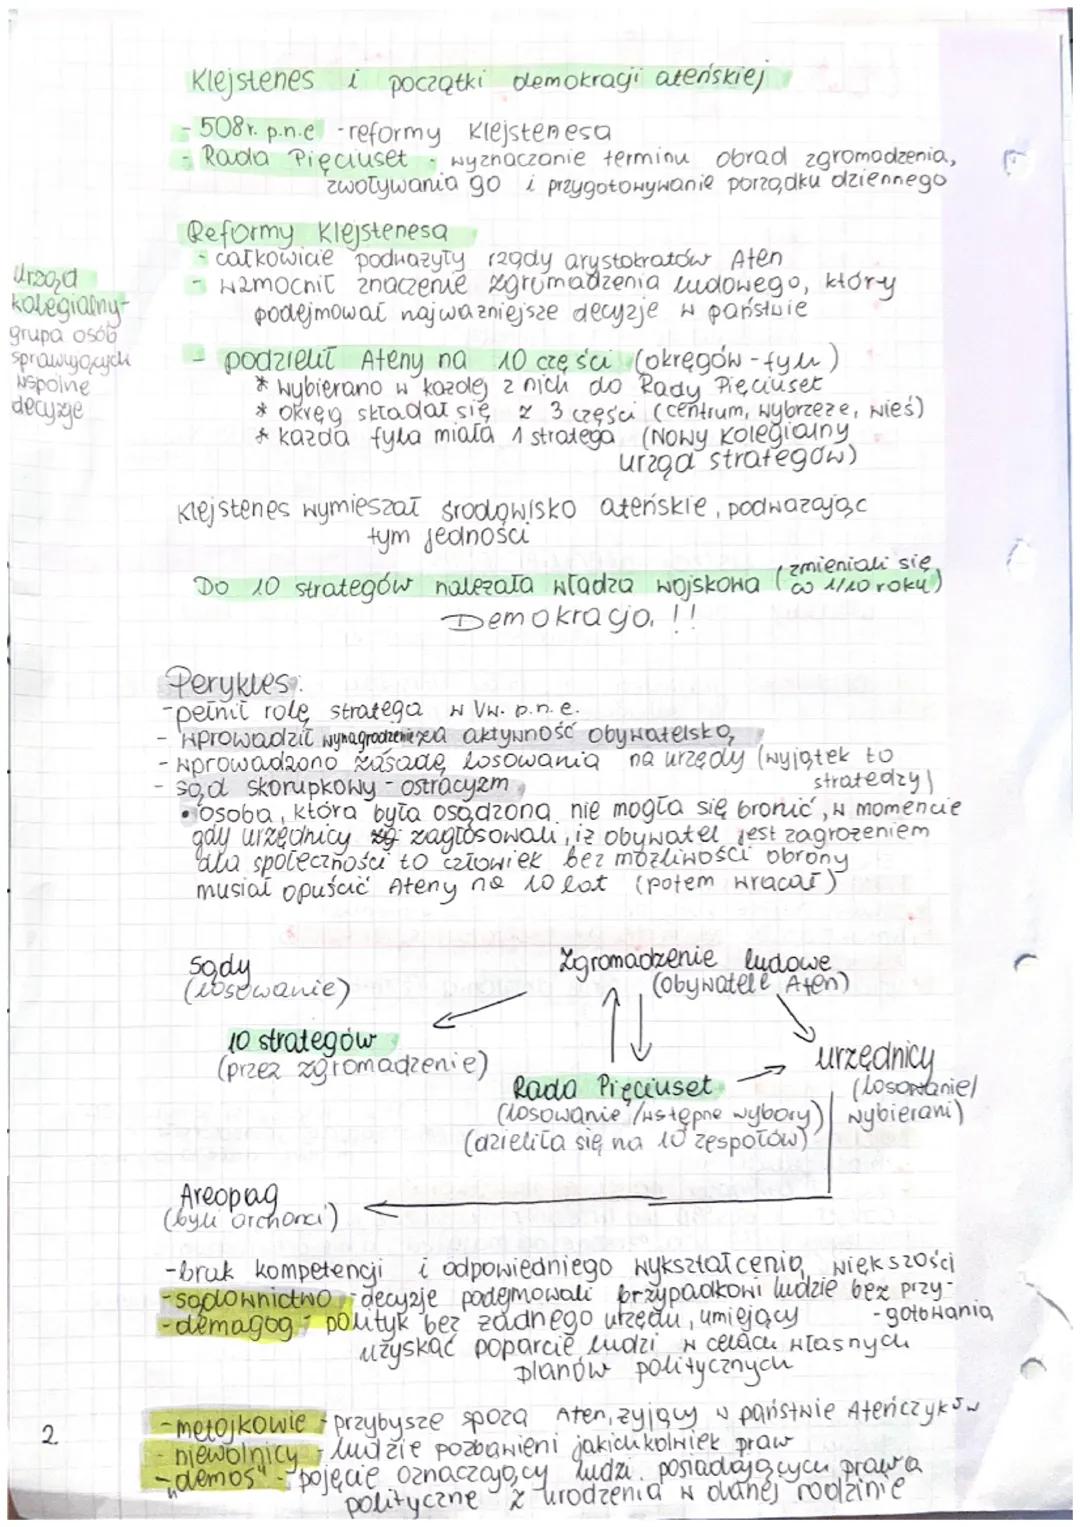 Klejstenes i początki demokracji ateńskiej
- 508r. p.n.e - reformy Klejstenesa
- Rada Pięciuset - wyznaczanie terminu obrad zgromadzenia,
zwoływania go i przygotowywanie porządku dziennego
Reformy Klejstenesa
- całkowicie podważyły rządy arystokratów Aten
- wzmocnił znaczenie zgromadzenia ludowego, który
podejmował najważniejsze decyzje w państwie
Urząd
kolegialny-
grupa osób
sprawujących
wspólne
decyzje
- podzielił Ateny na 10 części (okręgów - fyli)
* wybierano w każdej z nich do Rady Pięciuset
* okręg składał się z 3 części (centrum, wybrzeże, wieś)
* każda fyla miała 1 stratega (Nowy kolegialny
urząd strategów)
Klejstenes wymieszał środowisko ateńskie, podważając
tym jedności
Do 10 strategów należała władza wojskowa (zmieniali się
co 1/10 roku)
Demokracja !!
Perykles:
- pełnił rolę stratega w Vw. p.n.e.
- wprowadził wynagrodzenie za aktywność obywatelską
- wprowadzono zasadę losowania na urzędy (wyjątek to
stratedzy)
- sąd skorupkowy - ostracyzm
• osoba, która była osądzona nie mogła się bronić, w momencie
gdy urzędnicy zagłosowali, iż obywatel jest zagrożeniem
dla społeczności to człowiek bez możliwości obrony
musiał opuścić Ateny na 10 lat (potem wracał)
Sądy
(losowanie)
Zgromadzenie ludowe
(obywatele Aten)
10 strategów
(przez zgromadzenie)
urzędnicy
(losowanie/
wybierani)
Rada Pięciuset
(losowanie/wstępne wybory)
(dzieliła się na 10 zespołów)
Areopag
(byli archonci)
- brak kompetencji i odpowiedniego wykształcenia większości
- sądownictwo - decyzje podejmowali przypadkowi ludzie bez przy-
-gotowania
- demagog - polityk bez żadnego urzędu, umiejący
uzyskać poparcie ludzi w celach własnych
planów politycznych
- metojkowie - przybysze spoza Aten, żyjący w państwie Ateńczyków
- niewolnicy - ludzie pozbawieni jakichkolwiek praw
- „demos" - pojęcie oznaczający ludzi posiadających prawa
polityczne z urodzenia w danej rodzinie
2